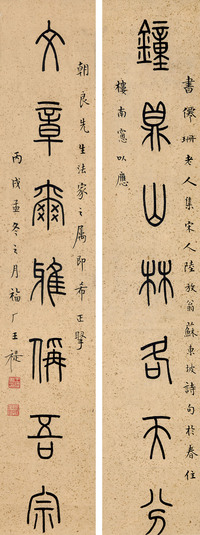 書珊老人集宋人陸放翁蘇東坡詩句於春住
鐘鼎山林各天分
樓南窻以應
朝良先生法家之屬即希正
文章爾雅稱吾宗
丙戌孟冬之月福厂王禔